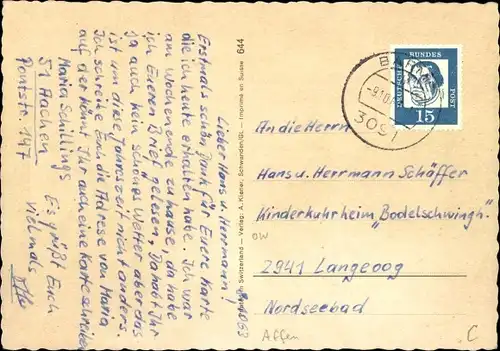 Lieber Hans u. Herrmann!
Erstmals schön Dank für Euere Karte
die ich heute erhalten habe. Ich war
am Wochenende zu hause, da habe
ich Eueren Brief gelesen. Da habt Ihr
ja auch kein schönes Wetter aber das
ist um diese Jahreszeit nicht anders.
Ich schreibe Euch die Adresse von Maria
auf, der könnt Ihr auch eine Karte schreiben
Maria Schillings
51 Aachen
Pontstr. 147
Es grüßt Euch
vielmals
644
in Switzerland — Verlag: A. Küstel, Schwanden/GL. — Imprimé en Suisse
BAR
3091
DEUTSCHE
BUNDES
POST
15
An die Herrn
Hans u. Herrmann Schäffer
Kinderkuhrheim "Bodelschwingh"
OW
2941 Langeoog
Nordseebad
Affen
C